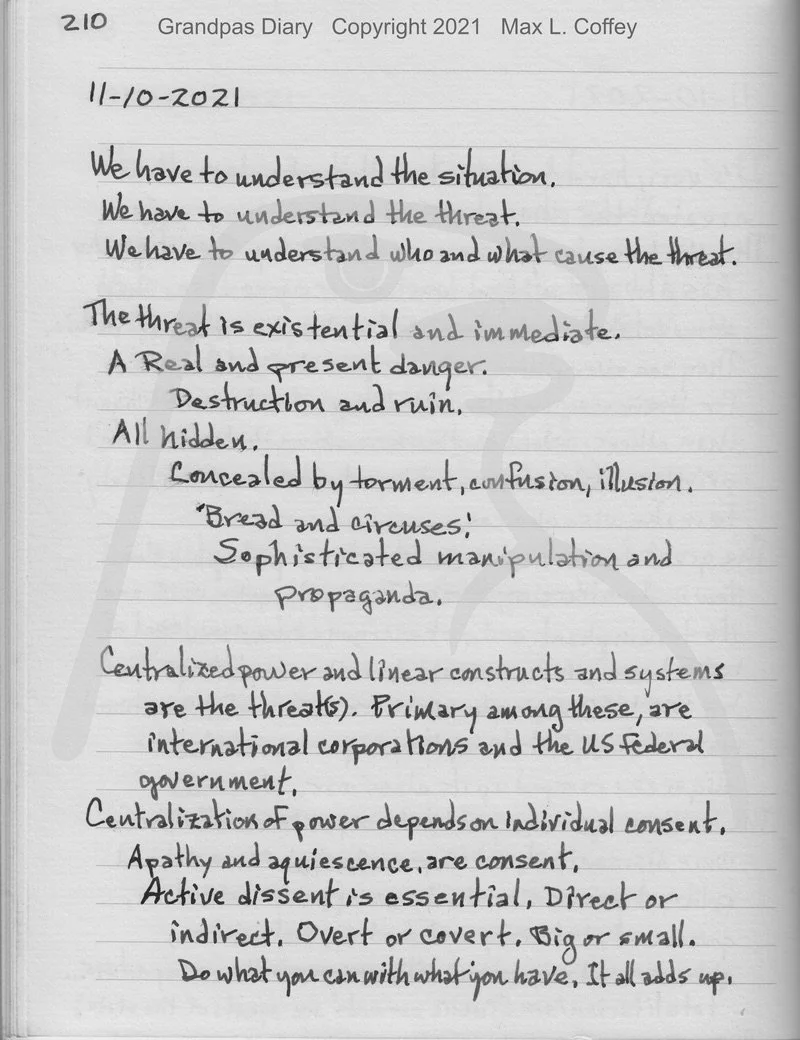 210 Grandpas Diary Copyright 2021 Max L. Coffey
11-10-2021
We have to understand the situation.
We have to understand the threat.
We have to understand who and what cause the threat.
The threat is existential and immediate.
A Real and present danger.
Destruction and ruin.
All hidden.
Concealed by torment, confusion, illusion.
'Bread and circuses.'
Sophisticated manipulation and
propaganda.
Centralized power and linear constructs and systems
are the threat(s). Primary among these, are
international corporations and the US Federal
government.
Centralization of power depends on individual consent.
Apathy and aquiescence, are consent.
Active dissent is essential. Direct or
indirect. Overt or covert. Big or small.
Do what you can with what you have. It all adds up.